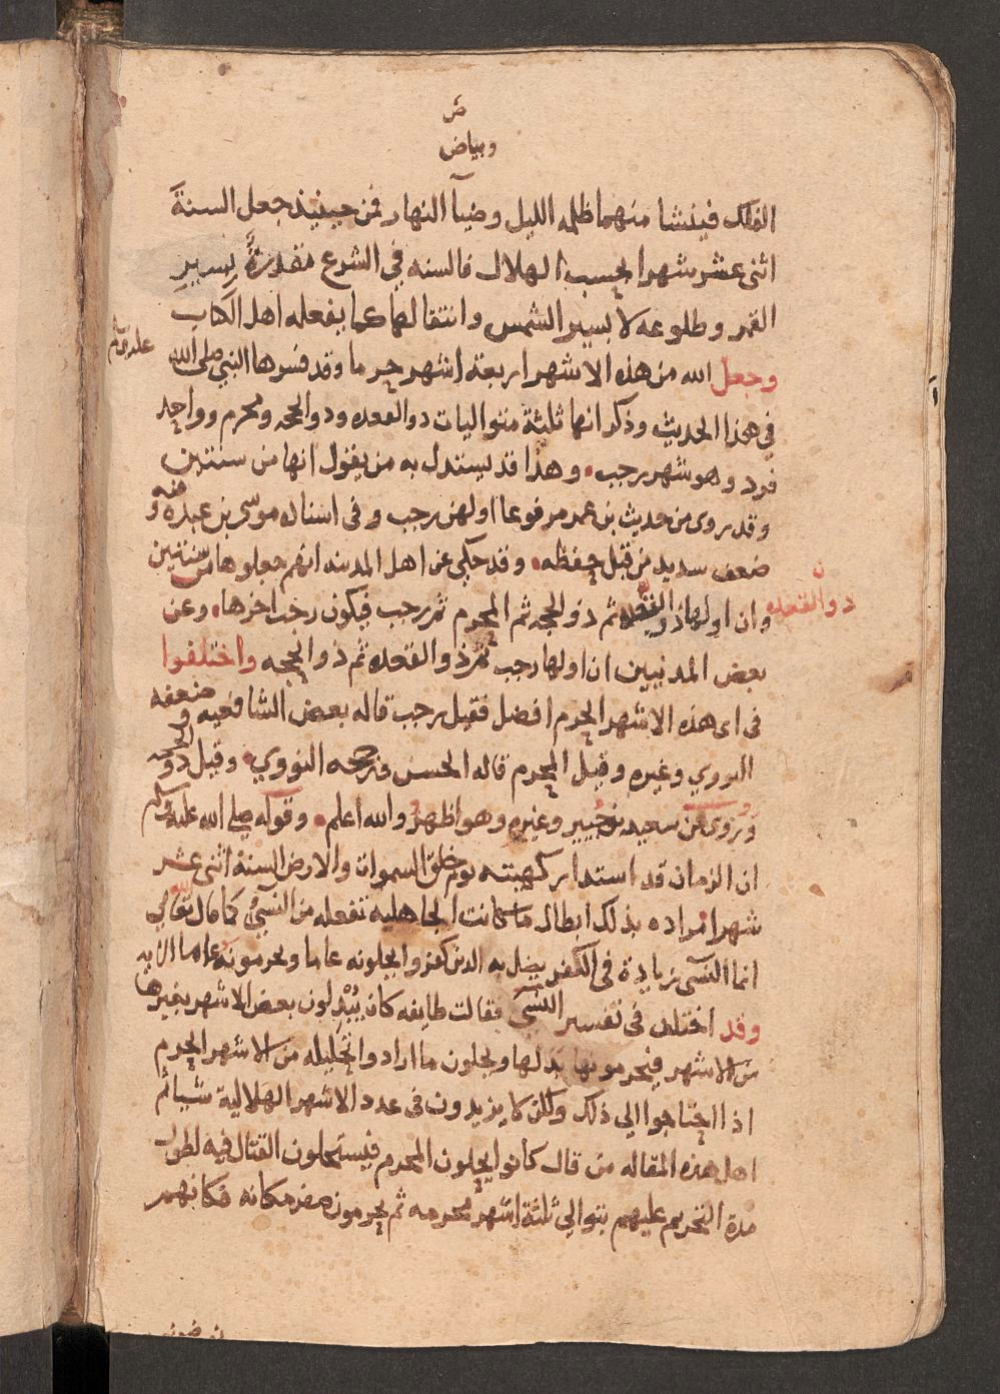 ض
وبياض
الفلك فينشا منهما ظلمه الليل وضيآ النهار فمن حينيذ جعل السنة
اثنى عشر شهرا بحسب الهلال فالسنه في الشرع مقدرة بسير
القمر وطلوعه لا بسير الشمس وانتقالها كما يفعله اهل الكتاب
وجعل الله من هذه الاشهر اربعة اشهر حرما وقد فسرها النبي صلى الله
عليه وسلم
في هذا الحديث وذكر انها ثلثة متواليات ذو القعده وذو الحجه ومحرم وواحد
فرد وهو شهر رجب وهذا قد يستدل به من يقول انها من سنتين
وقد روى من حديث بن عمر مرفوعا اولهن رجب وفى اسناده موسى بن عبيده وفيه
ضعف سديد من قبل حفظه وقد حكى عن اهل المدينه انهم جعلوها من سنتين
وان اولها ذو القعده ثم ذو الحجه ثم المحرم ثم رجب فيكون رجب اخرها وعن
ن
ذو القعده
بعض المدنيين ان اولها رجب ثم ذو القعده ثم ذو الحجه واختلفوا
فى اى هذه الاشهر الحرم افضل فقيل رجب قاله بعض الشافعيه وضعفه
النووي وغيره وقيل المحرم قاله الحسن ورجحه النووي وقيل ذو الحجه
وروى عن سعيد بن جبير وغيره وهو اظهر والله اعلم وقوله صلى الله عليه وسلم
ان الزمان قد استدار كهيته يوم خلق السموات والارض السنة اثنى عشر
شهرا مراده بذلك ابطال ما كانت الجاهليه تفعله من النسيء كما قال الله تعالى
انما النسى زيادة فى الكفر يضل به الذين كفروا يحلونه عاما ويحرمونه عاما الايه
وقد اختلف فى تفسير النسى فقالت طايفه كانو يبدلون بعض الاشهر بغيرها
من الاشهر فيحرمونها بدلها ويحلون ما ارادوا تحليله من الاشهر الحرم
اذا احتاجوا الى ذلك ولكن لا يزيدون فى عدد الاشهر الهلالية شيا ثم
اهل هذه المقاله من قال كانوا يحلون المحرم فيستحلون القتال فيه لطول
مدة التحريم عليهم بتوالي ثلثة اشهر محرمه ثم يحرمون صفر مكانه فكانهم